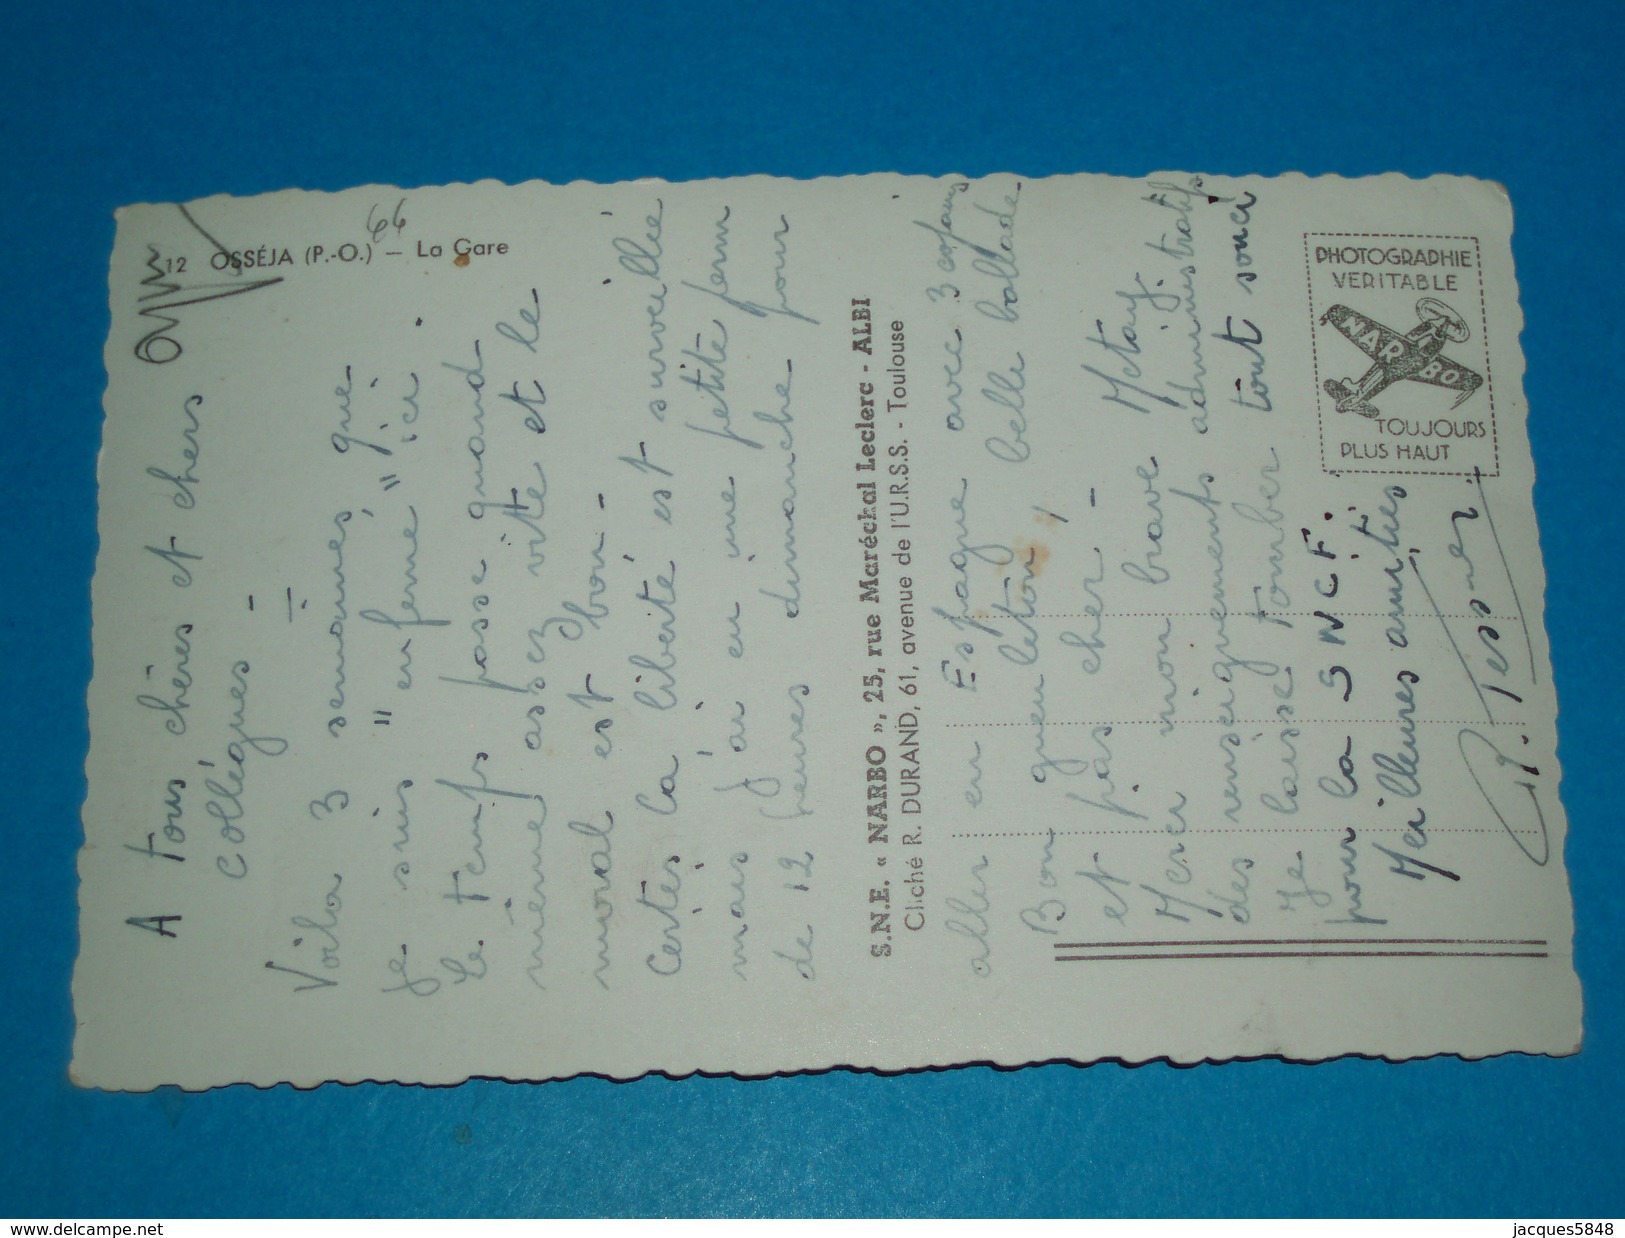 12 OSSÉJA (P.-O.) — La Gare
66
A tous chères et chers
collègues —
Voila 3 semaines que
je suis "enfermé" ici.
Le temps passe quand
même assez vite et le
moral est bon -
Certes la liberté est surveillée
mais j'ai eu une petite perm
de 12 heures dimanche pour
S.N.E. « NARBO », 25, rue Maréchal Leclerc - ALBI
Cliché R. DURAND, 61, avenue de l'U.R.S.S. - Toulouse
aller en Espagne avec 3 copains
Bon gueuleton, belle ballade
et pas cher -
Merci mon brave Metay.
des renseignements administratifs
Je laisse tomber tout souci
pour la SNCF.
Meilleures amitiés
PHOTOGRAPHIE
VERITABLE
NARBO
TOUJOURS
PLUS HAUT
jacques5848